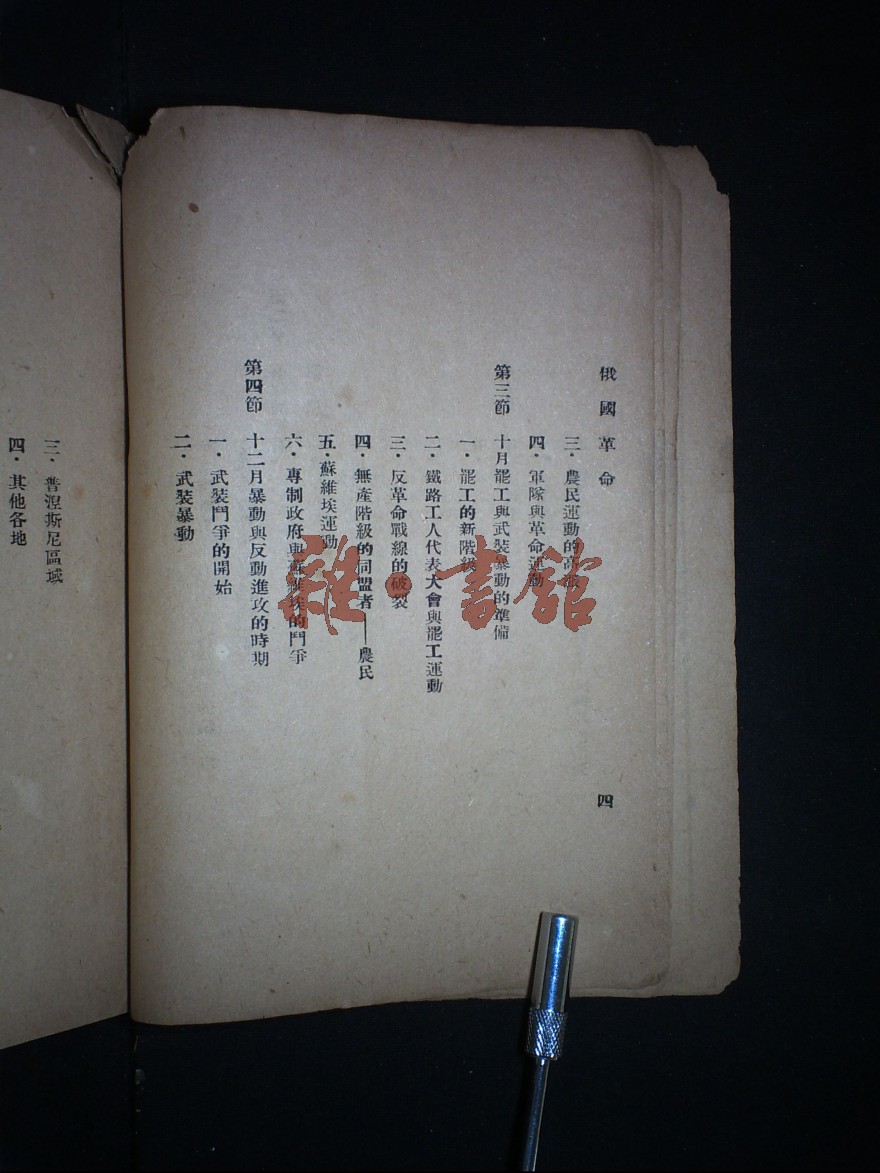 俄國革命
四
三·農民運動的高漲
四·軍隊與革命運動
第三節 十月罷工與武裝暴動的準備
一·罷工的新階級
二·鐵路工人代表大會與罷工運動
三·反革命戰線的破裂
四·無產階級的同盟者——農民
五·蘇維埃運動
六·專制政府與蘇維埃的鬥爭
第四節 十二月暴動與反動進攻的時期
一·武裝鬥爭的開始
二·武裝暴動
三·普涅斯尼區域
四·其他各地
雜·書館